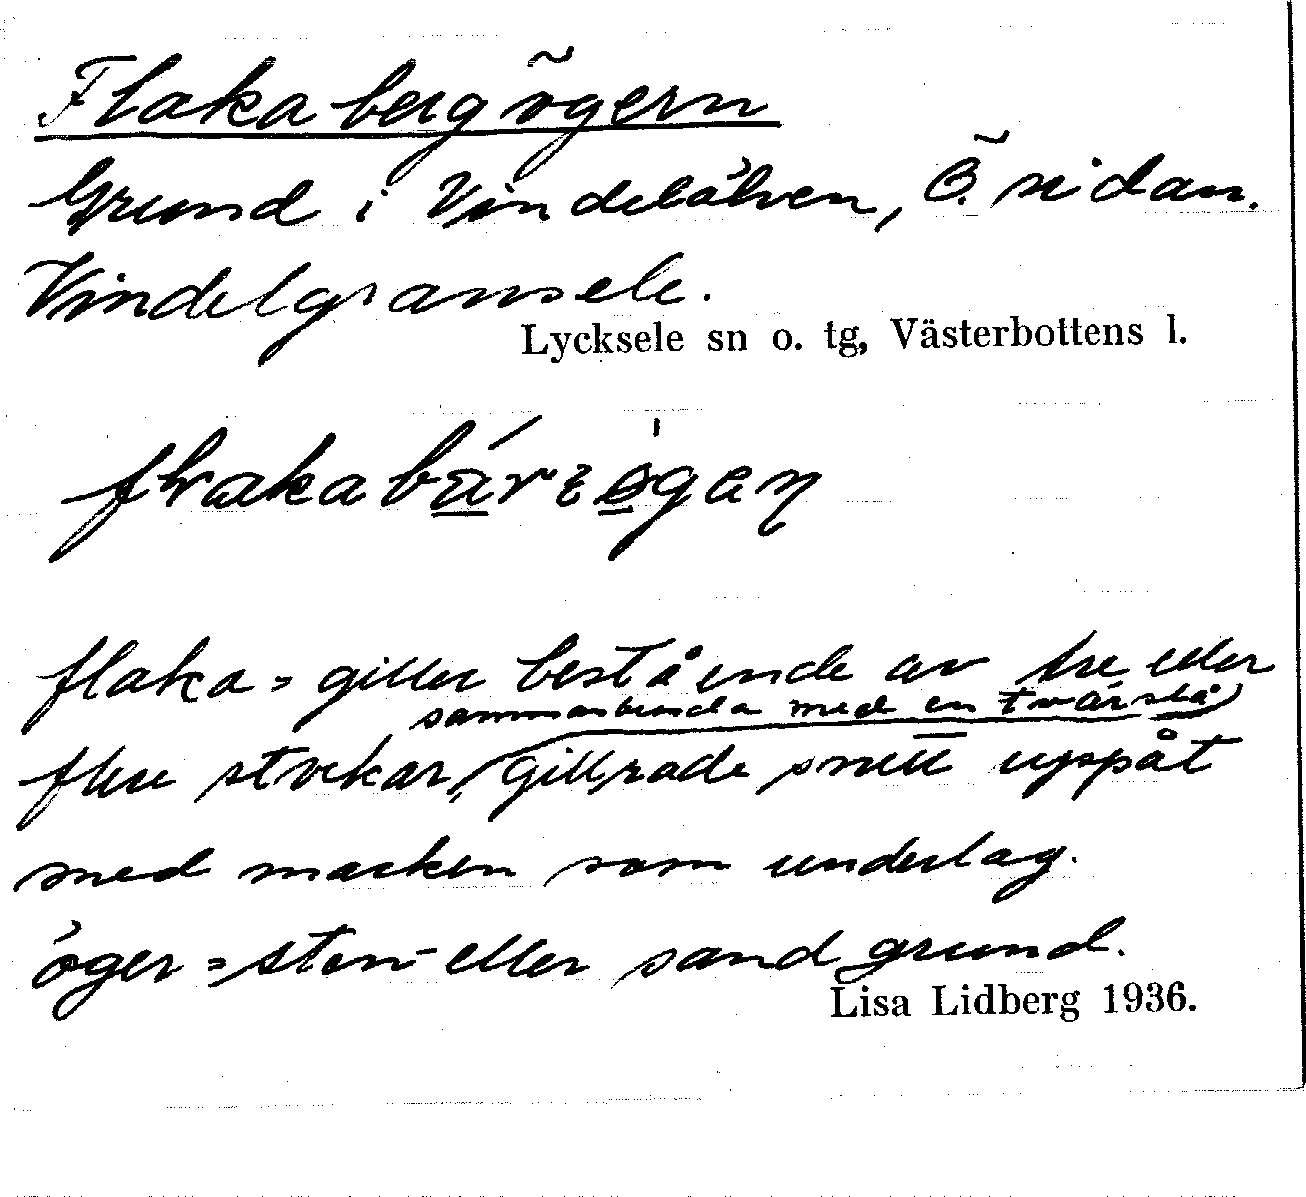 Flakabergögern
Grund i Vindelälven, Ö. sidan.
Vindelgransele.
Lycksele sn o. tg, Västerbottens l.
flaka = giller bestående av tre eller
sammanbundna med en tvärslå
flere stockar, gillrade snett uppåt
med marken som underlag.
öger = sten- eller sandgrund.
Lisa Lidberg 1936.